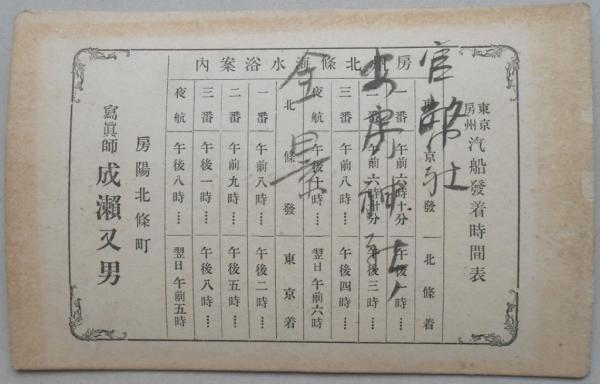 房州北條海水浴案內
東京房州汽船發着時間表
東京發
北條着
一番
午前六時十分
午後一時……
二番
午前六時十分
午後三時……
三番
午前八時……
午後四時……
夜航
午後十時……
翌日午前六時
北條發
東京着
一番
午前八時……
午後二時……
二番
午前九時……
午後五時……
三番
午後一時……
午後八時……
夜航
午後八時……
翌日午前五時
房陽北條町
寫眞師 成瀨又男
官幣社
安房神社
全景